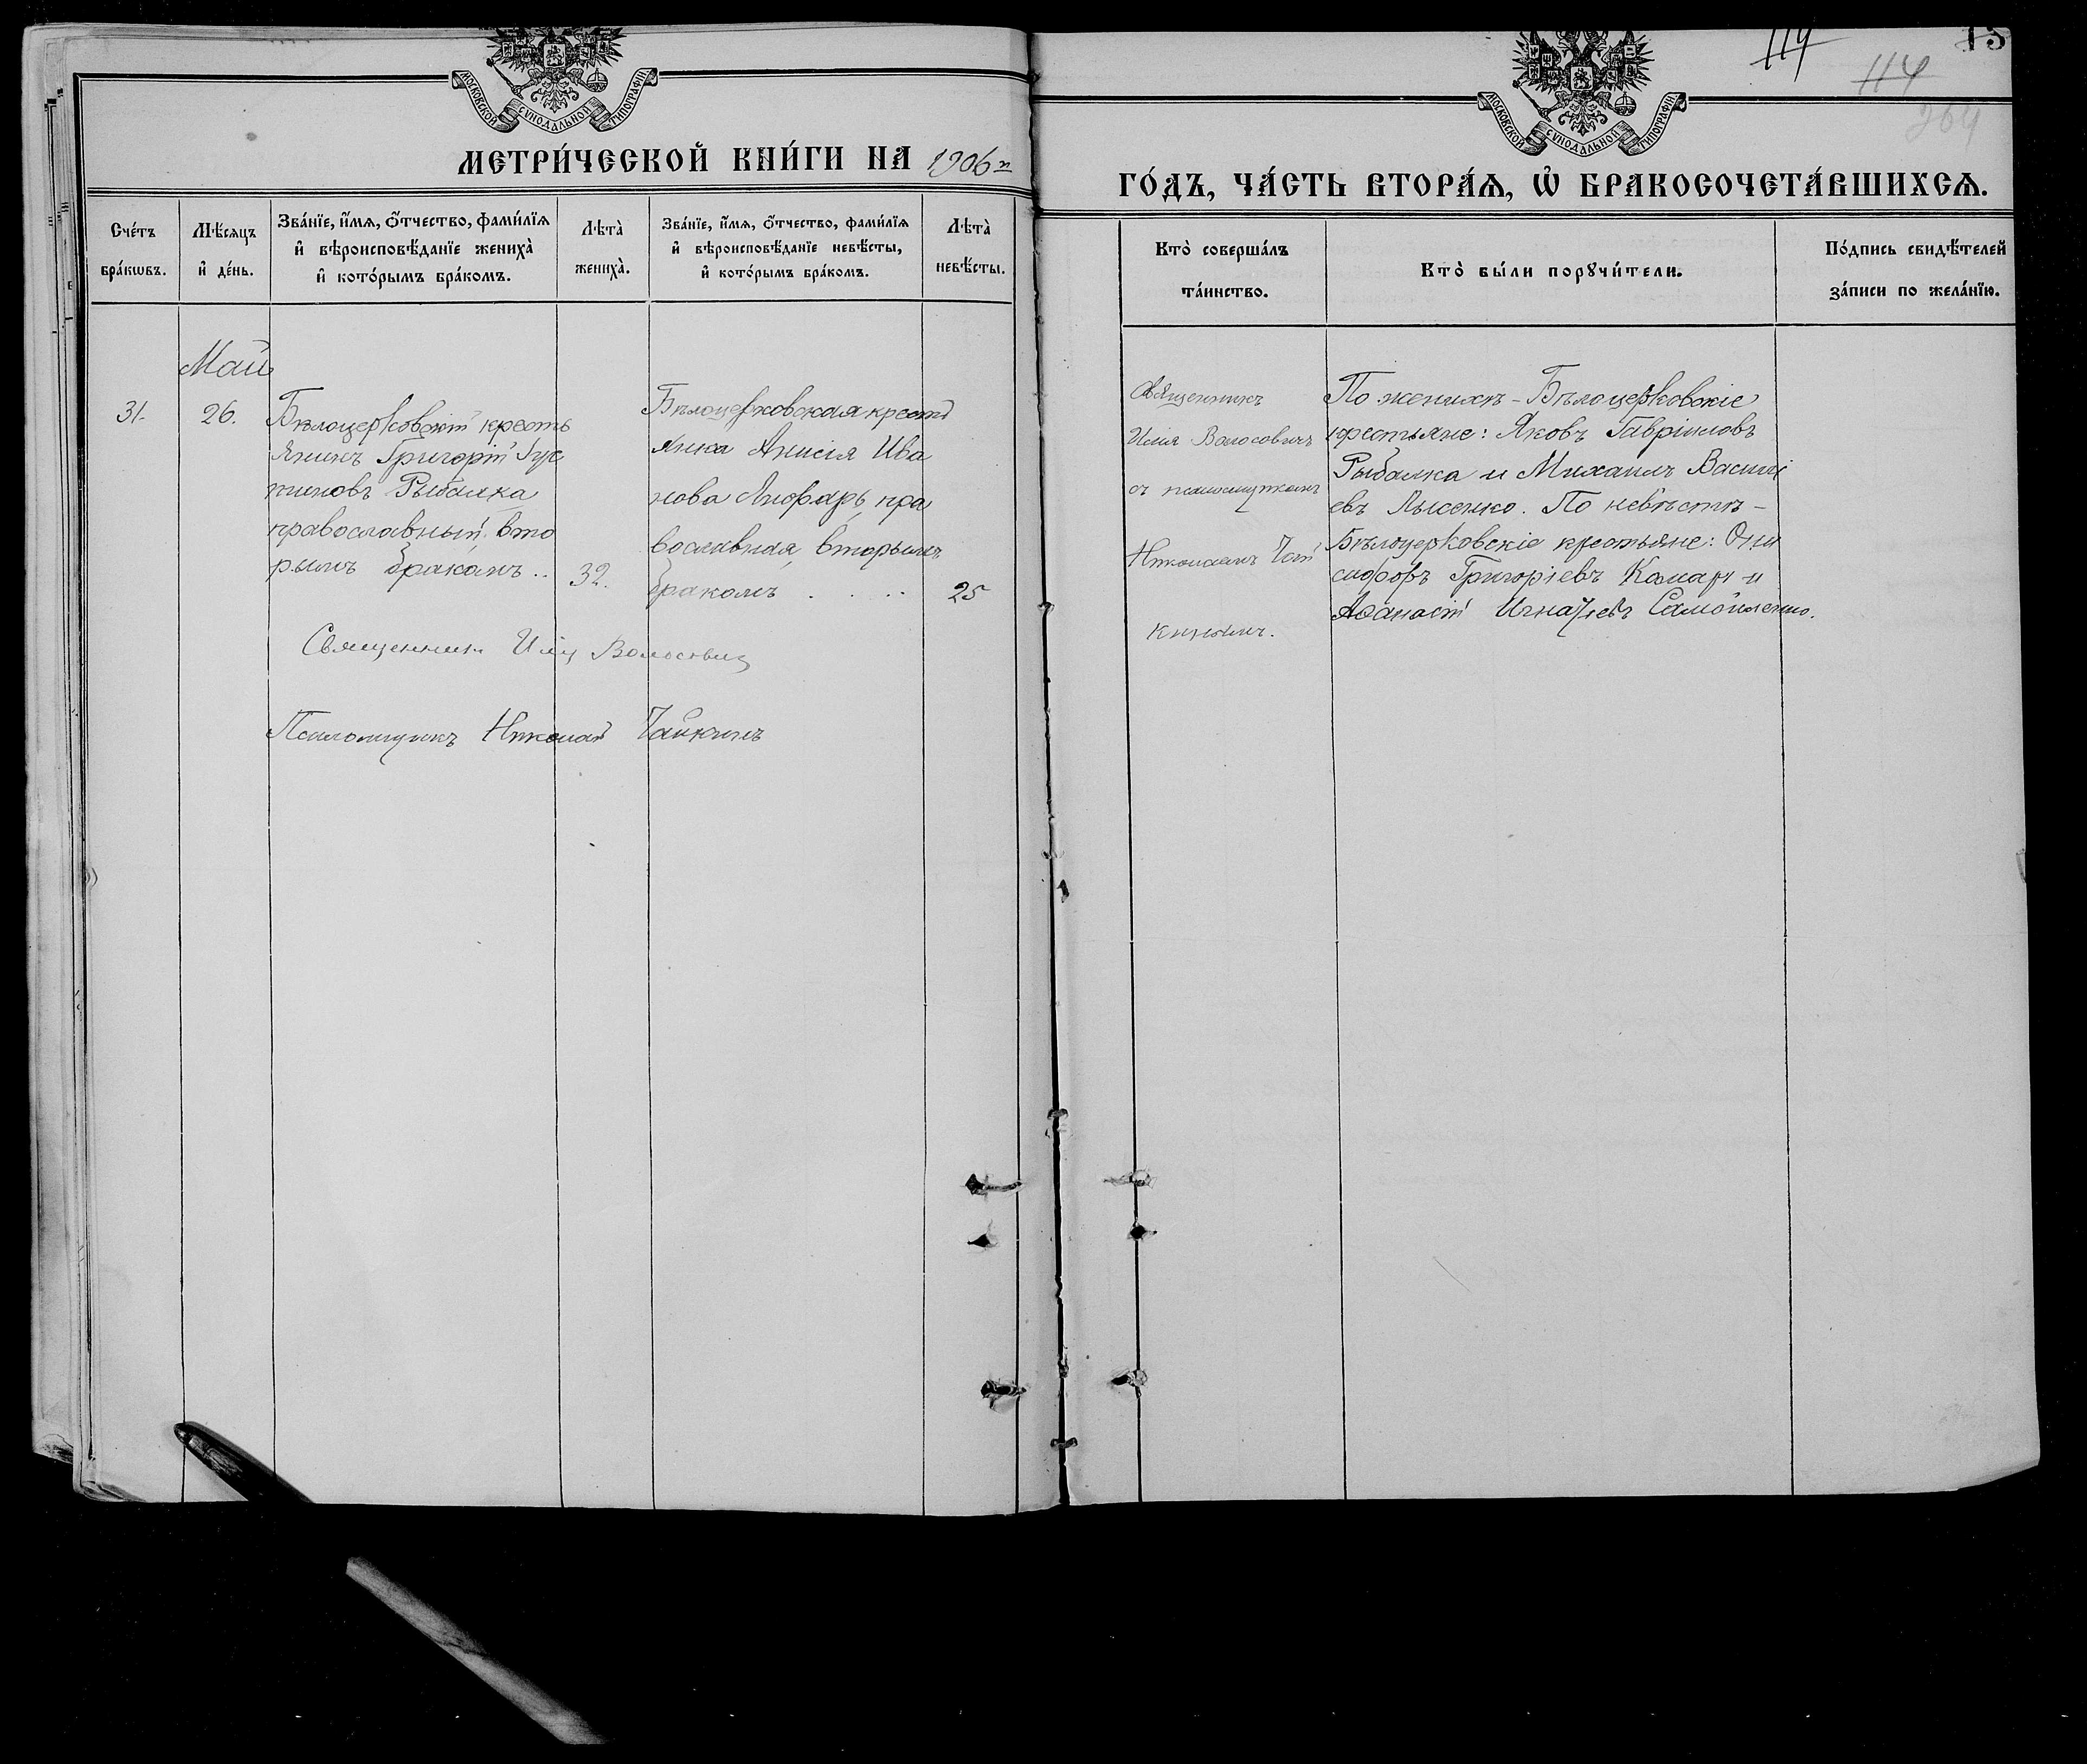 МОСКОВСКОЙ СѴНОДАЛЬНОЙ ТИПОГРАФІИ
МЕТРИ́ЧЕСКОЙ КНИ́ГИ НА 1906й
Сче́тъ бра́кѡвъ.
Мѣ́сяцъ и҆ де́нь.
Зва́нїе, и҆́мѧ, ѻ҆́тчество, фами́лїѧ и҆ вѣроисповѣ́данїе жениха̀ и҆ кото́рымъ бра́комъ.
Лѣта̀ жениха̀.
Зва́нїе, и҆́мѧ, ѻ҆́тчество, фами́лїѧ и҆ вѣроисповѣ́данїе невѣ́сты, и҆ кото́рымъ бра́комъ.
Лѣта̀ невѣ́сты.
Май
31.
26.
Бѣлоцерковскій кресть
янинъ Григорій Іус
тиновъ Рыбалка
православный, вто
рымъ бракомъ..
32.
Бѣлоцерковская кресть
янка Анисія Ива
нова Лифарь, пра
вославная, вторымъ
бракомъ . . . .
25
Священникъ Илія Волосовичъ
Псаломщикъ Николай Чайкинъ
114
114
264
15
МОСКОВСКОЙ СѴНОДАЛЬНОЙ ТИПОГРАФІИ
ГО́ДЪ, ЧА́СТЬ ВТОРА́Ѧ, Ѡ҆ БРАКОСОЧЕТА́ВШИХСѦ.
Кто̀ соверша́лъ та́инство.
Кто̀ бы́ли порꙋчи́тели.
По́дпись свидѣ́телей за́писи по жела́нїю.
Священникъ
Илія Волосовичъ
съ псаломщикомъ
Николаемъ Чай
кинымъ.
По женихѣ - Бѣлоцерковскіе
крестьяне: Яковъ Гавриловъ
Рыбалка и Михаилъ Василі
евъ Лысенко. По невѣстѣ -
Бѣлоцерковскіе крестьяне: Они
сифоръ Григоріевъ Комаръ и
Аѳанасій Игнатіевъ Самойленко.